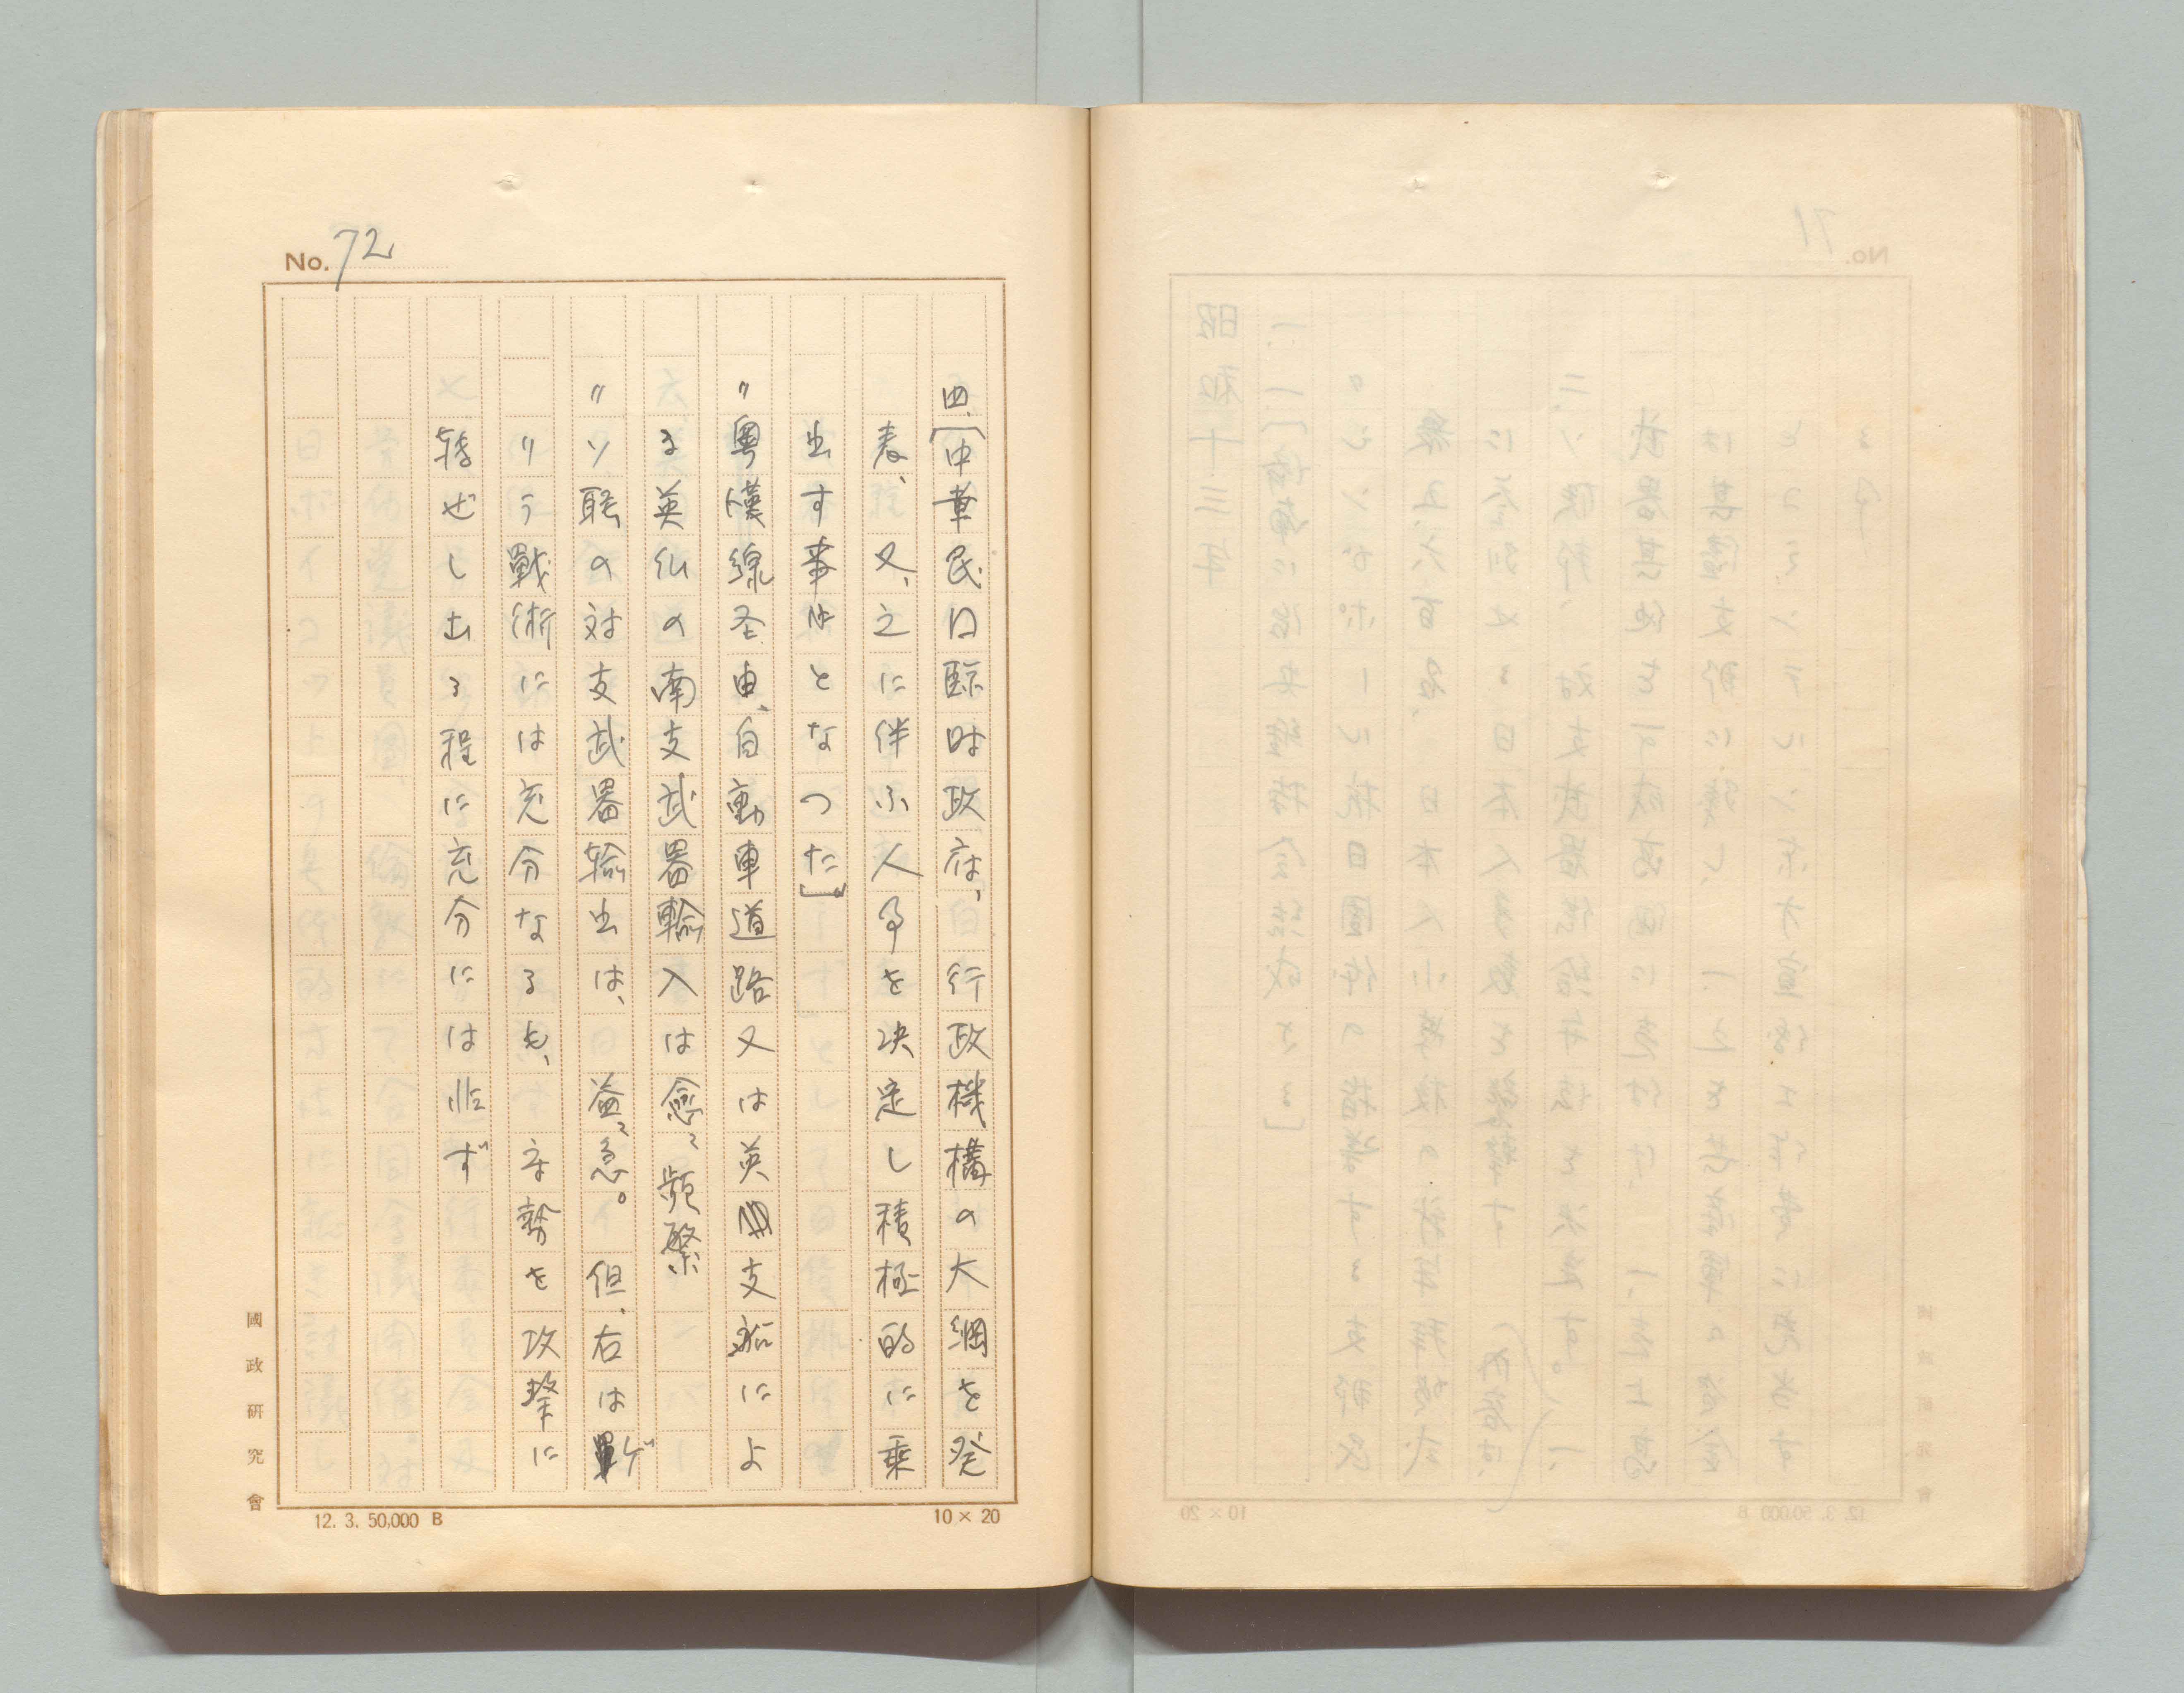 No. 72
四、[中華民国臨時政府は、行政機構の大綱を発
表、又、之に伴ふ人事を決定し積極的に乗
出す事はとなつた]
〃粤漢線を経由、自動車道路又は英支船によ
る英仏の南支武器輸入は愈〻頻繁
〃ソ聯の対支武器輸出は、益〻急。但、右はゲ
リラ戦術には充分なるも、守勢を攻撃に
転ぜし出る程に充分には非ず
國政研究會
12. 3. 50,000 B
10×20